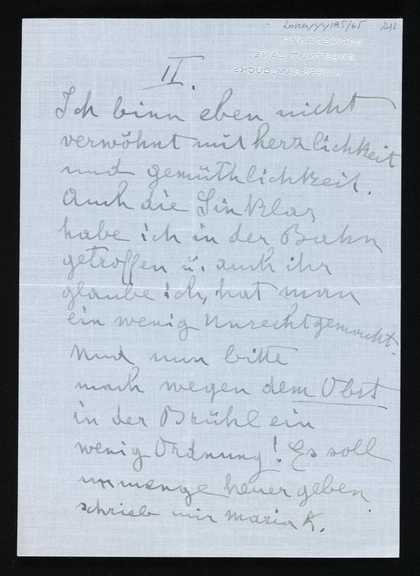 II.
Ich binn eben nicht
verwöhnt mit herzlichkeit
und gemüthlichkeit.
Auch die Sinklar
habe ich in der Bahn
getroffen u. auch ihr
glaube ich, hat man
ein wenig Unrecht gemacht.
Und nun bitte
mach wegen dem Obst
in der Brühl ein
wenig Ordnung! Es soll
unmenge heuer geben
schrieb mir Maria K.